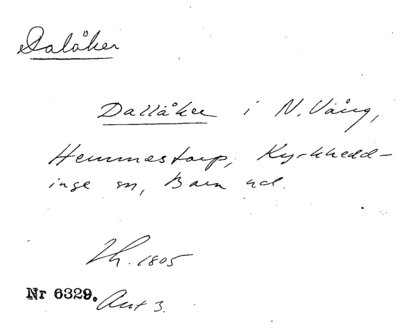 Dalåker
Dallåker i N. Vång,
Hemmestorp, Kyrkhedd-
inge sn, Bara hd.
Lh. 1805
Nr 6329. Ant 3.